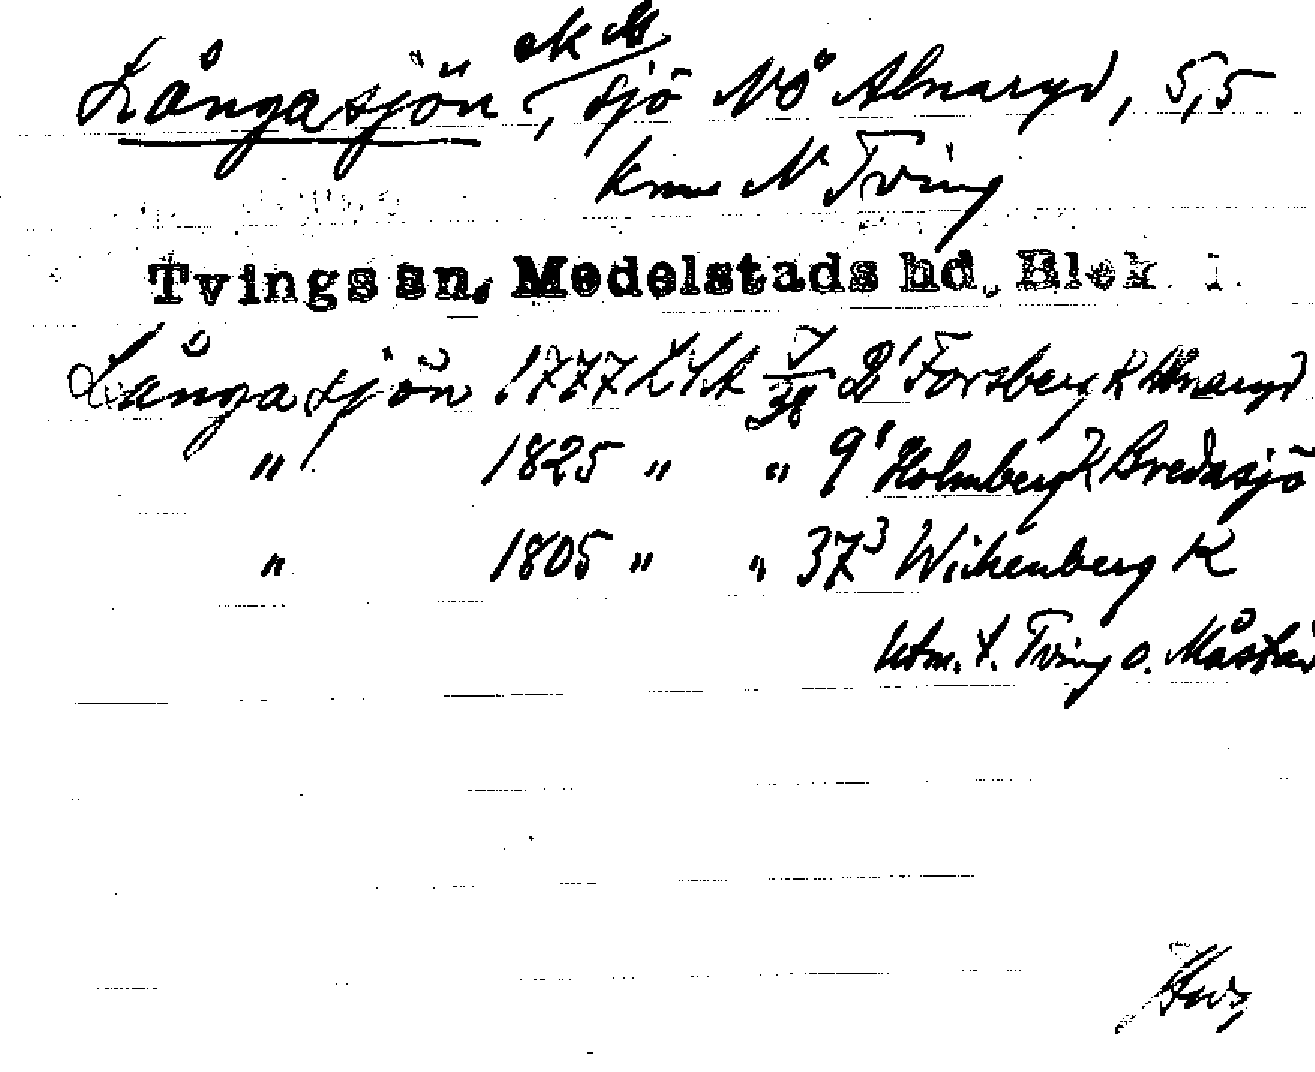 Långasjön, sjö NÖ Alnaryd, 5,5
km N Tving
Tvings sn, Medelstads hd, Blek. l.
Långasjön 1777 LSA 7/38 2¹ Forsberg K Alnaryd
" 1825 " " 9¹ Holmberg K Bredasjö
" 1805 " " 37³ Wihenberg K
utm. f. Tving o.